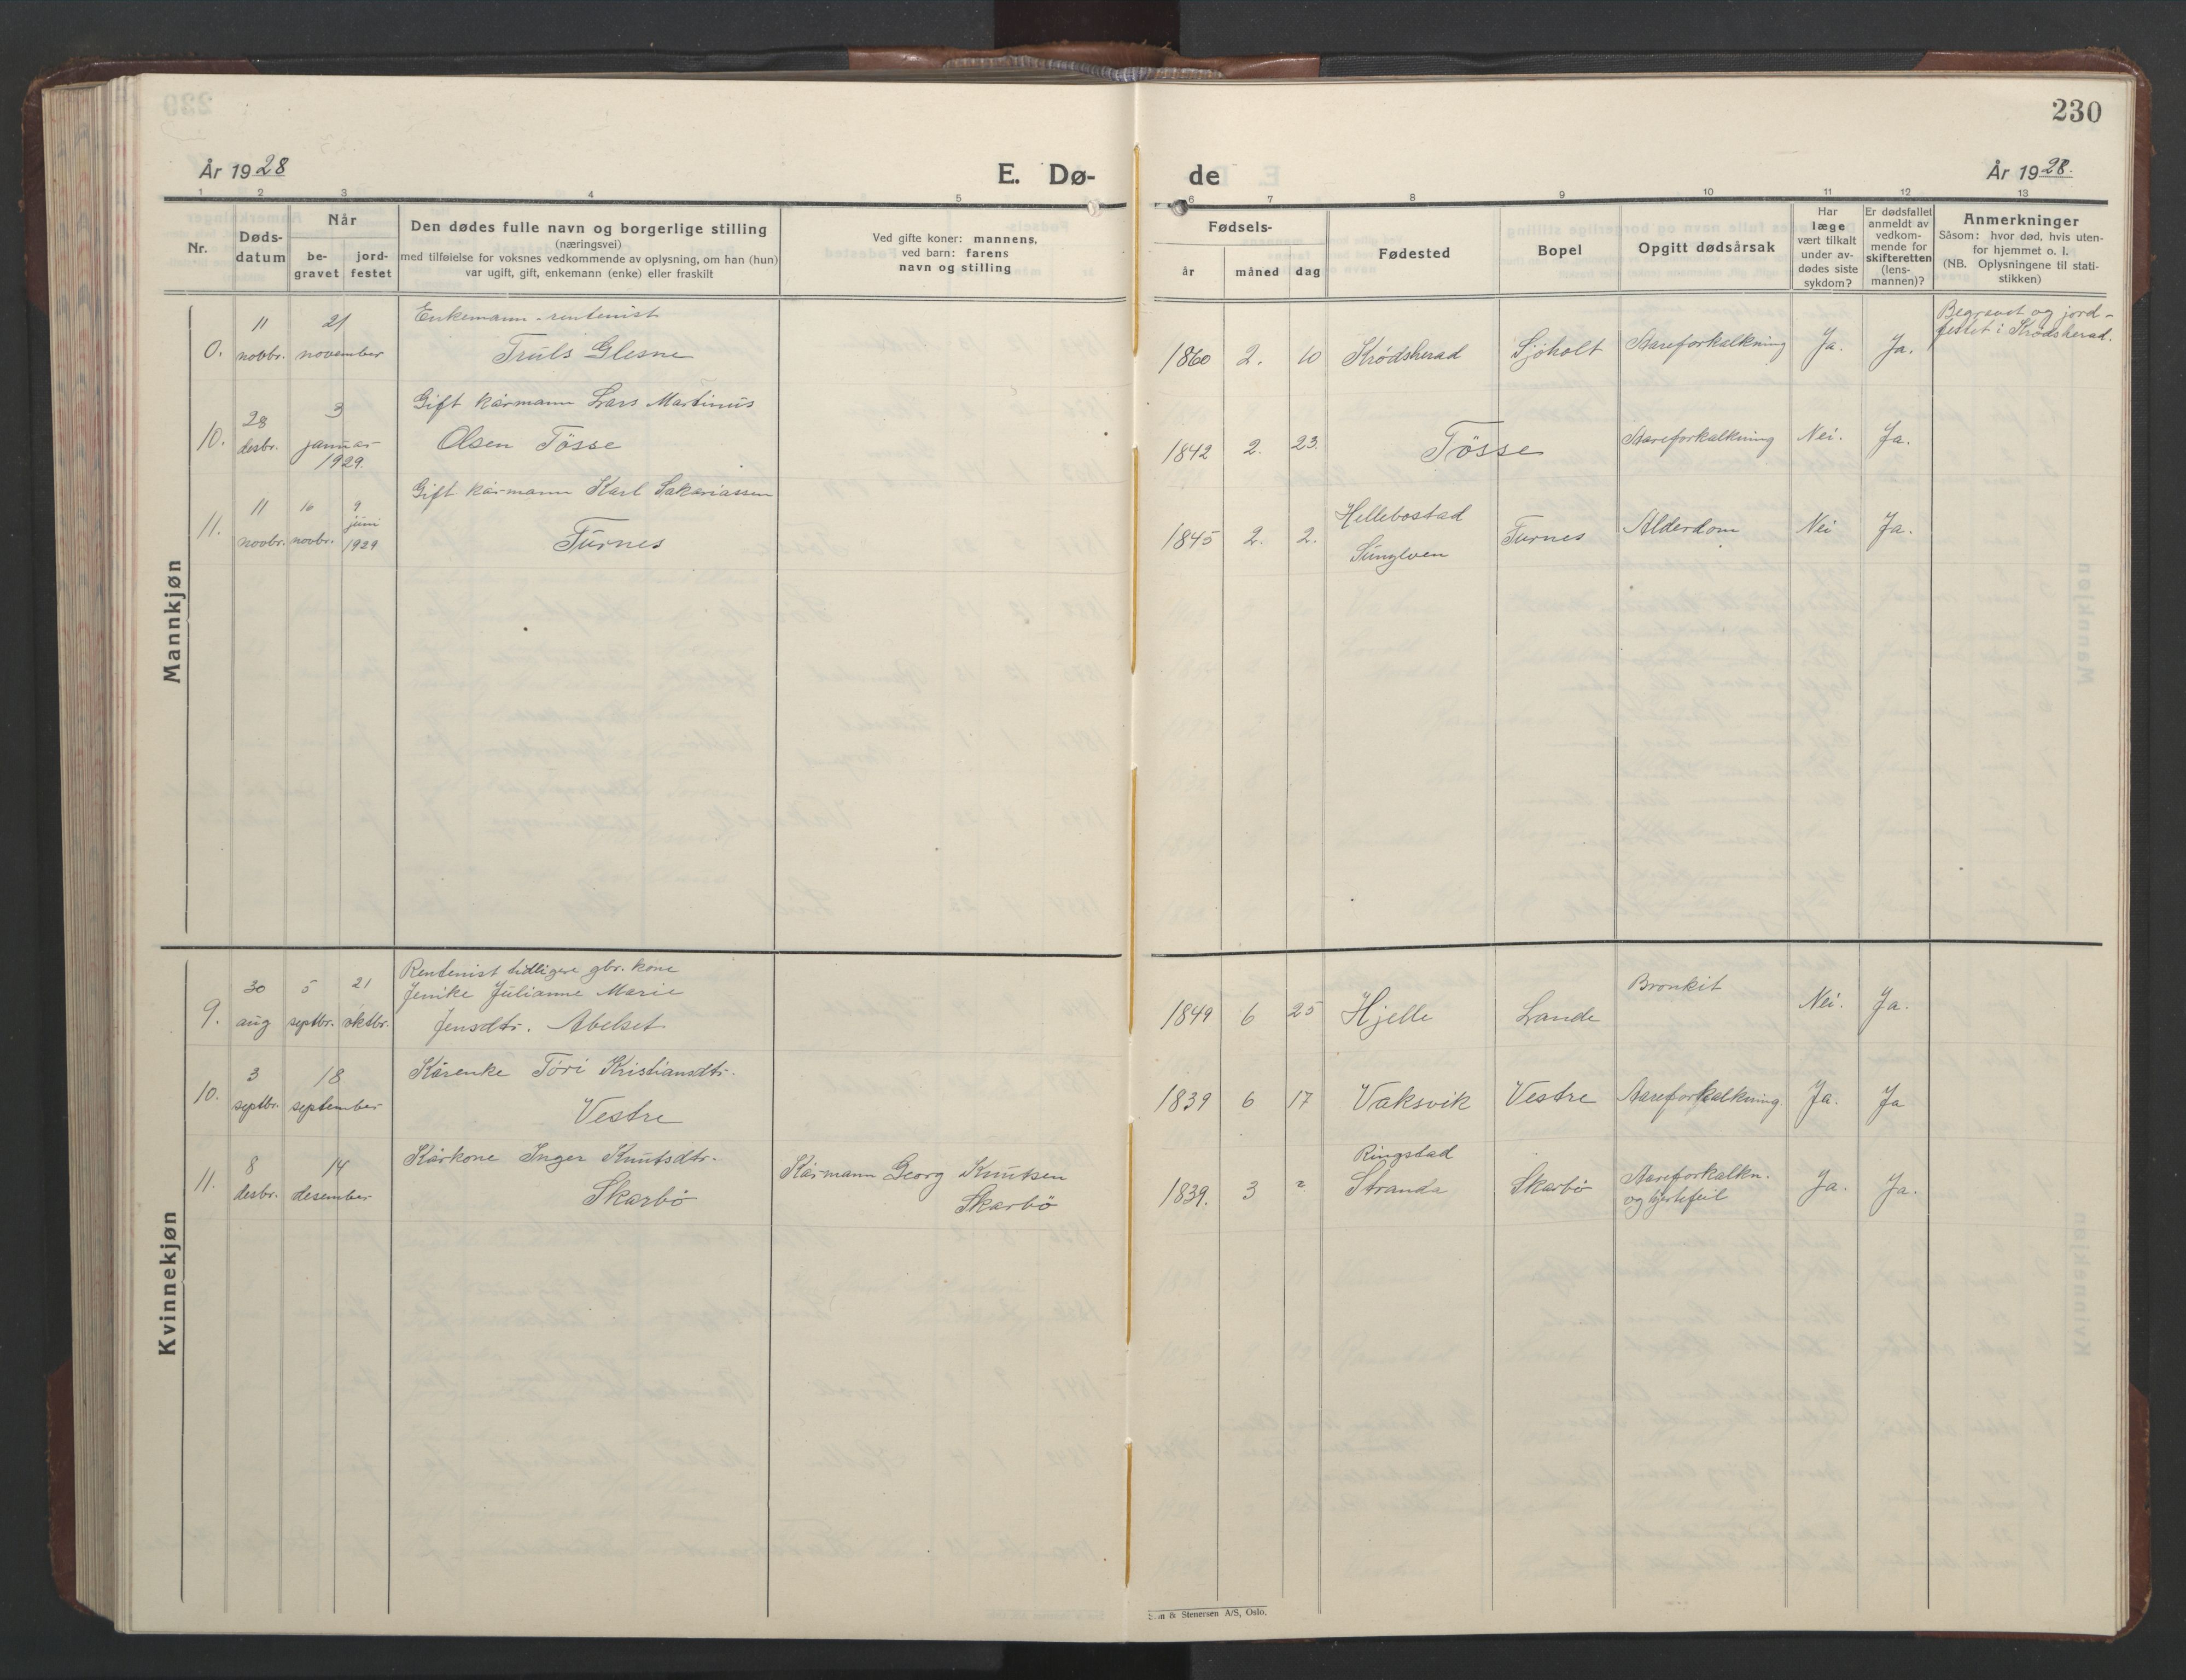 230
År 1928
E. Dø-
de
År 1928.
1 2 3 4 5 6 7 8 9 10 11 12 13
Nr.
Døds-
datum
Når
be-
gravet
jord-
festet
Den dødes fulle navn og borgerlige stilling
(næringsvei)
med tilføielse for voksnes vedkommende av oplysning, om han (hun)
var ugift, gift, enkemann (enke) eller fraskilt
Ved gifte koner: mannens,
ved barn: farens
navn og stilling
Fødsels-
år
måned
dag
Fødested
Bopel
Opgitt dødsårsak
Har
læge
vært tilkalt
under av-
dødes siste
sykdom?
Er dødsfallet
anmeldt av
vedkom-
mende for
skifteretten
(lens-
mannen)?
Anmerkninger
Såsom: hvor død, hvis uten-
for hjemmet o. l.
(NB. Oplysningene til stati-
stikken)
Mannkjøn
0.
11
novbr.
21
november
Enkemann - rentenist
Truls Glesne
1860 2. 10 Krødsherad Sjøholt Aareforkalkning Ja. Ja.
Begravet og jord-
festet i Krødsherad.
10.
28
desbr.
3
januar
1929.
Gift kårmann Lars Martinus
Olsen Tösse
1842 2. 23. Tösse Aareforkalkning Nei. Ja.
11.
11
novbr.
16
novbr.
9
juni
1929
Gift kårmann Karl Sakariassen
Furnes
1845 2. 2.
Hellebostad
Sunylven
Furnes Alderdom Nei Ja.
Kvinnekjøn
9.
30
aug
5
septbr.
21
oktbr.
Rentenist tidligere gbr. kone
Jenike Julianne Marie
Jensdtr. Abelset
1849 6 25 Hjelle Lande Bronkit Nei. Ja.
10.
3
septbr.
18
september
Kårenke Töri Kristiansdtr.
Vestre
1839 6 17 Vaksvik Vestre Aareforkalkning. Ja. Ja
11.
8
desbr.
14
desember
Kårkone Inger Knutsdtr.
Skarbö
Kårmann Georg Knutsen
Skarbö
1839. 3 2
Ringstad
Stranda
Skarbö
Aareforkalkn.
og hjertefeil
Ja. Ja.
& Stenersen A/S, Oslo.